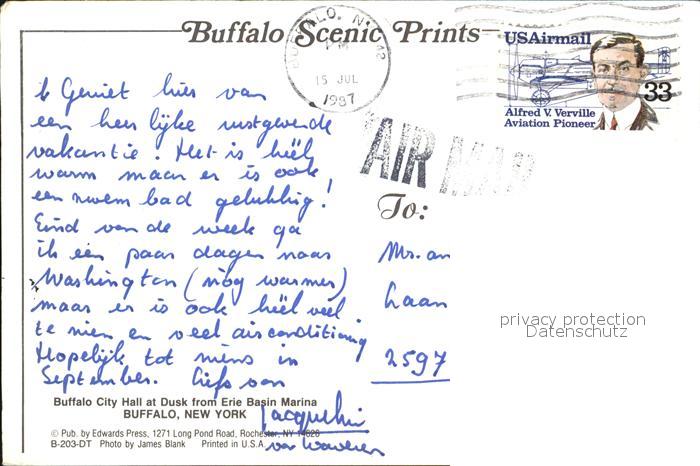 Buffalo Scenic Prints
BUFFALO, N.Y. 142
PM
15 JUL
1987
USAirmail
33
Alfred V. Verville
Aviation Pioneer
AIR MAIL
To:
Ik Geniet hier van
een heerlijke rustgevende
vakantie. Het is héél
warm maar er is ook
een zwembad gelukkig!
Eind van de week ga
ik een paar dagen naar
Washington (nóg warmer)
maar er is ook héél veel
te zien en veel airconditioning
Hopelijk tot ziens in
September. Liefs van
Jacqueline
van Waveren
Mr. an
Laan
2597
privacy protection
Datenschutz
Buffalo City Hall at Dusk from Erie Basin Marina
BUFFALO, NEW YORK
© Pub. by Edwards Press, 1271 Long Pond Road, Rochester, NY 14626
B-203-DT Photo by James Blank Printed in U.S.A.